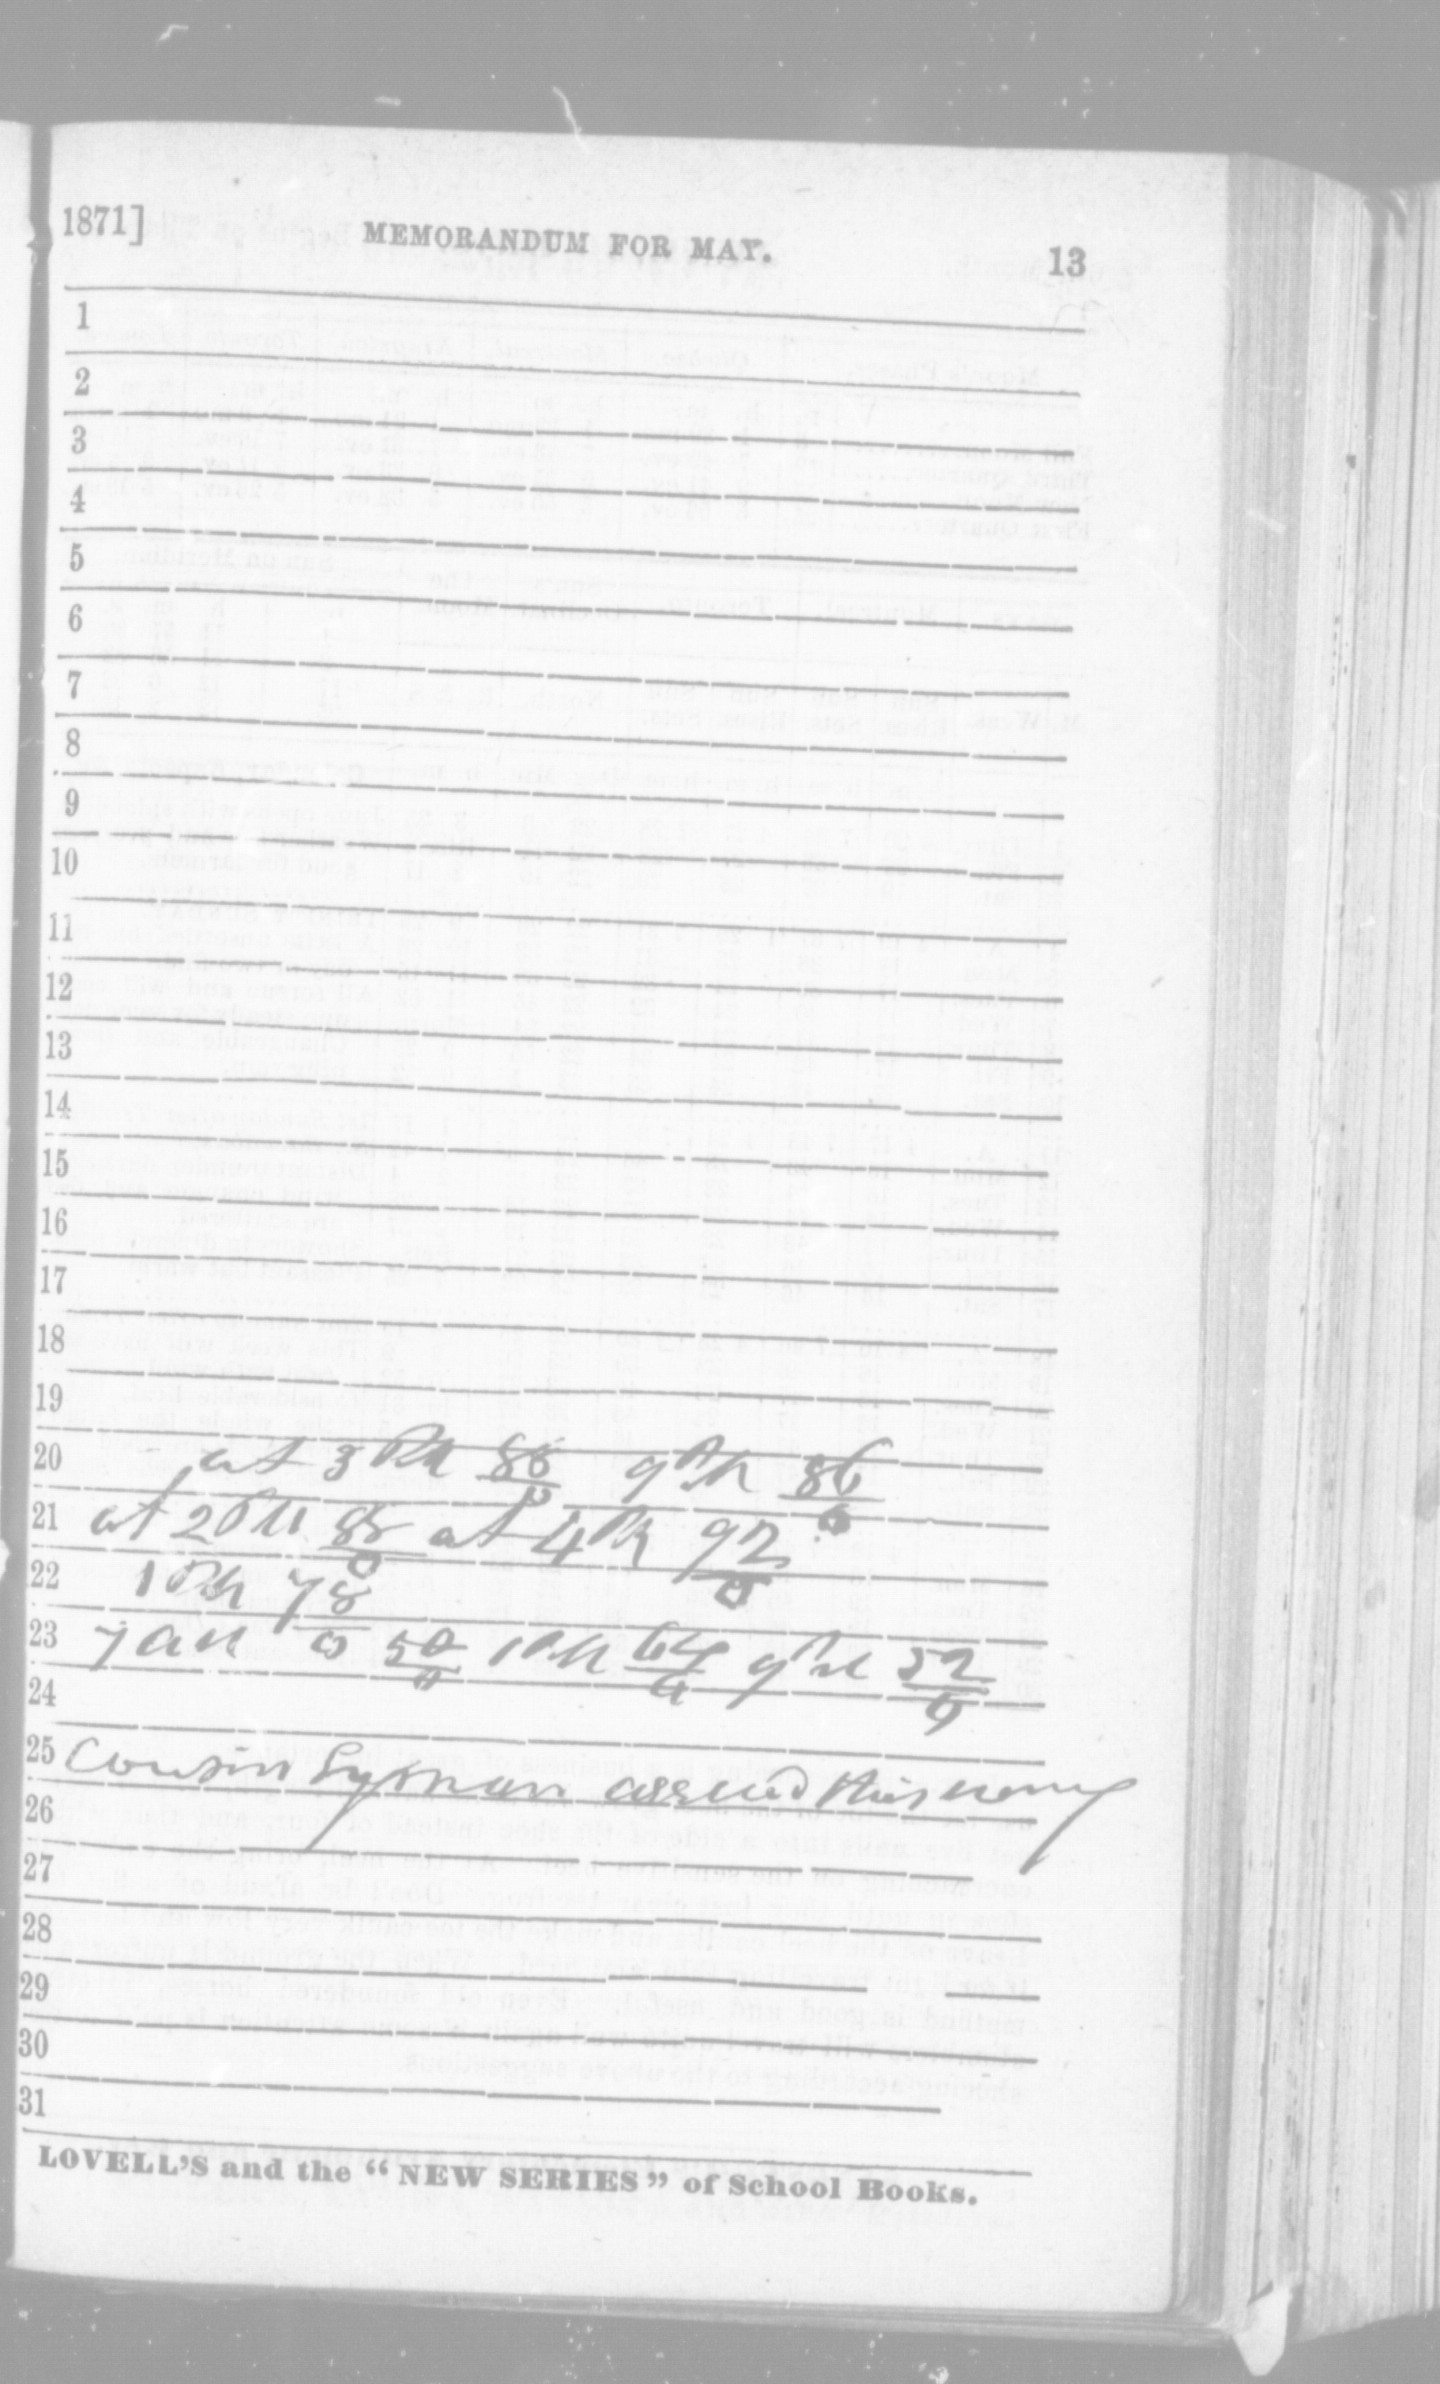 1871] MEMORANDUM FOR MAY. 13
1
2
3
4
5
6
7
8
9
10
11
12
13
14
15
16
17
18
19
20 at 3 PM 86/0 9 PM 86/0
21 at 2 PM 88/0 at 4 PM 92/0
22 1 PM 78/0
23 7 AM 50/0 1 PM 64/0 9 PM 52/0
24
25 Cousin Lyman arrived this
26
27
28
29
30
31
LOVELL'S and the "NEW SERIES" of School Books.